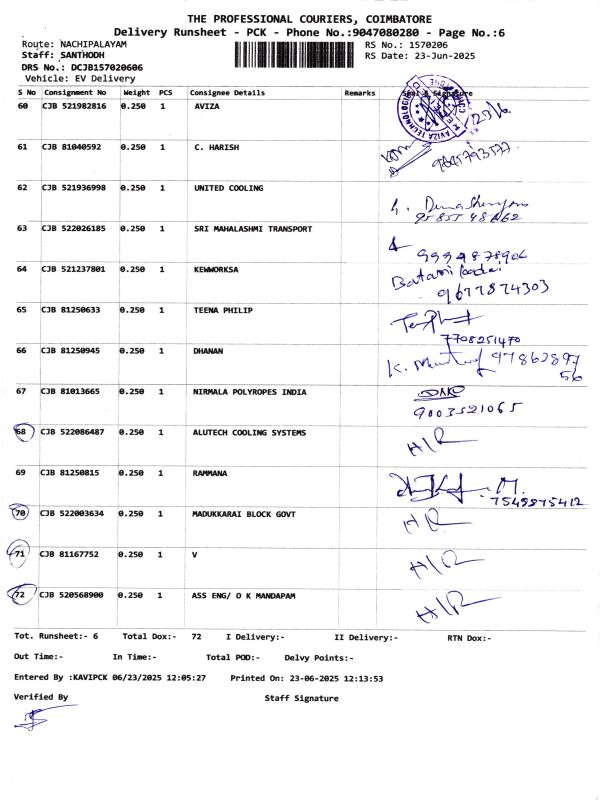 THE PROFESSIONAL COURIERS, COIMBATORE
Delivery Runsheet - PCK - Phone No.:9047080280 - Page No.:6
Route: NACHIPALAYAM RS No.: 1570206
Staff: SANTHODH RS Date: 23-Jun-2025
DRS No.: DCJB157020606
Vehicle: EV Delivery
S No Consignment No Weight PCS Consignee Details Remarks Signature
60 CJB 521982816 0.250 1 AVIZA
61 CJB 81040592 0.250 1 C. HARISH
62 CJB 521936998 0.250 1 UNITED COOLING
63 CJB 522026185 0.250 1 SRI MAHALASHMI TRANSPORT
64 CJB 521237801 0.250 1 KEWWORKSA
9677874303
65 CJB 81250633 0.250 1 TEENA PHILIP
7708251470
66 CJB 81250945 0.250 1 DHANAN
67 CJB 81013665 0.250 1 NIRMALA POLYROPES INDIA
9003521065
68 CJB 522086487 0.250 1 ALUTECH COOLING SYSTEMS H/R
69 CJB 81250815 0.250 1 RAMMANA
7549875412
70 CJB 522003634 0.250 1 MADUKKARAI BLOCK GOVT H/R
71 CJB 81167752 0.250 1 V H/R
72 CJB 520568900 0.250 1 ASS ENG/ O K MANDAPAM H/R
Tot. Runsheet:- 6 Total Dox:- 72 I Delivery:- II Delivery:- RTN Dox:-
Out Time:- In Time:- Total POD:- Delvy Points:-
Entered By :KAVIPCK 06/23/2025 12:05:27 Printed On: 23-06-2025 12:13:53
Verified By Staff Signature